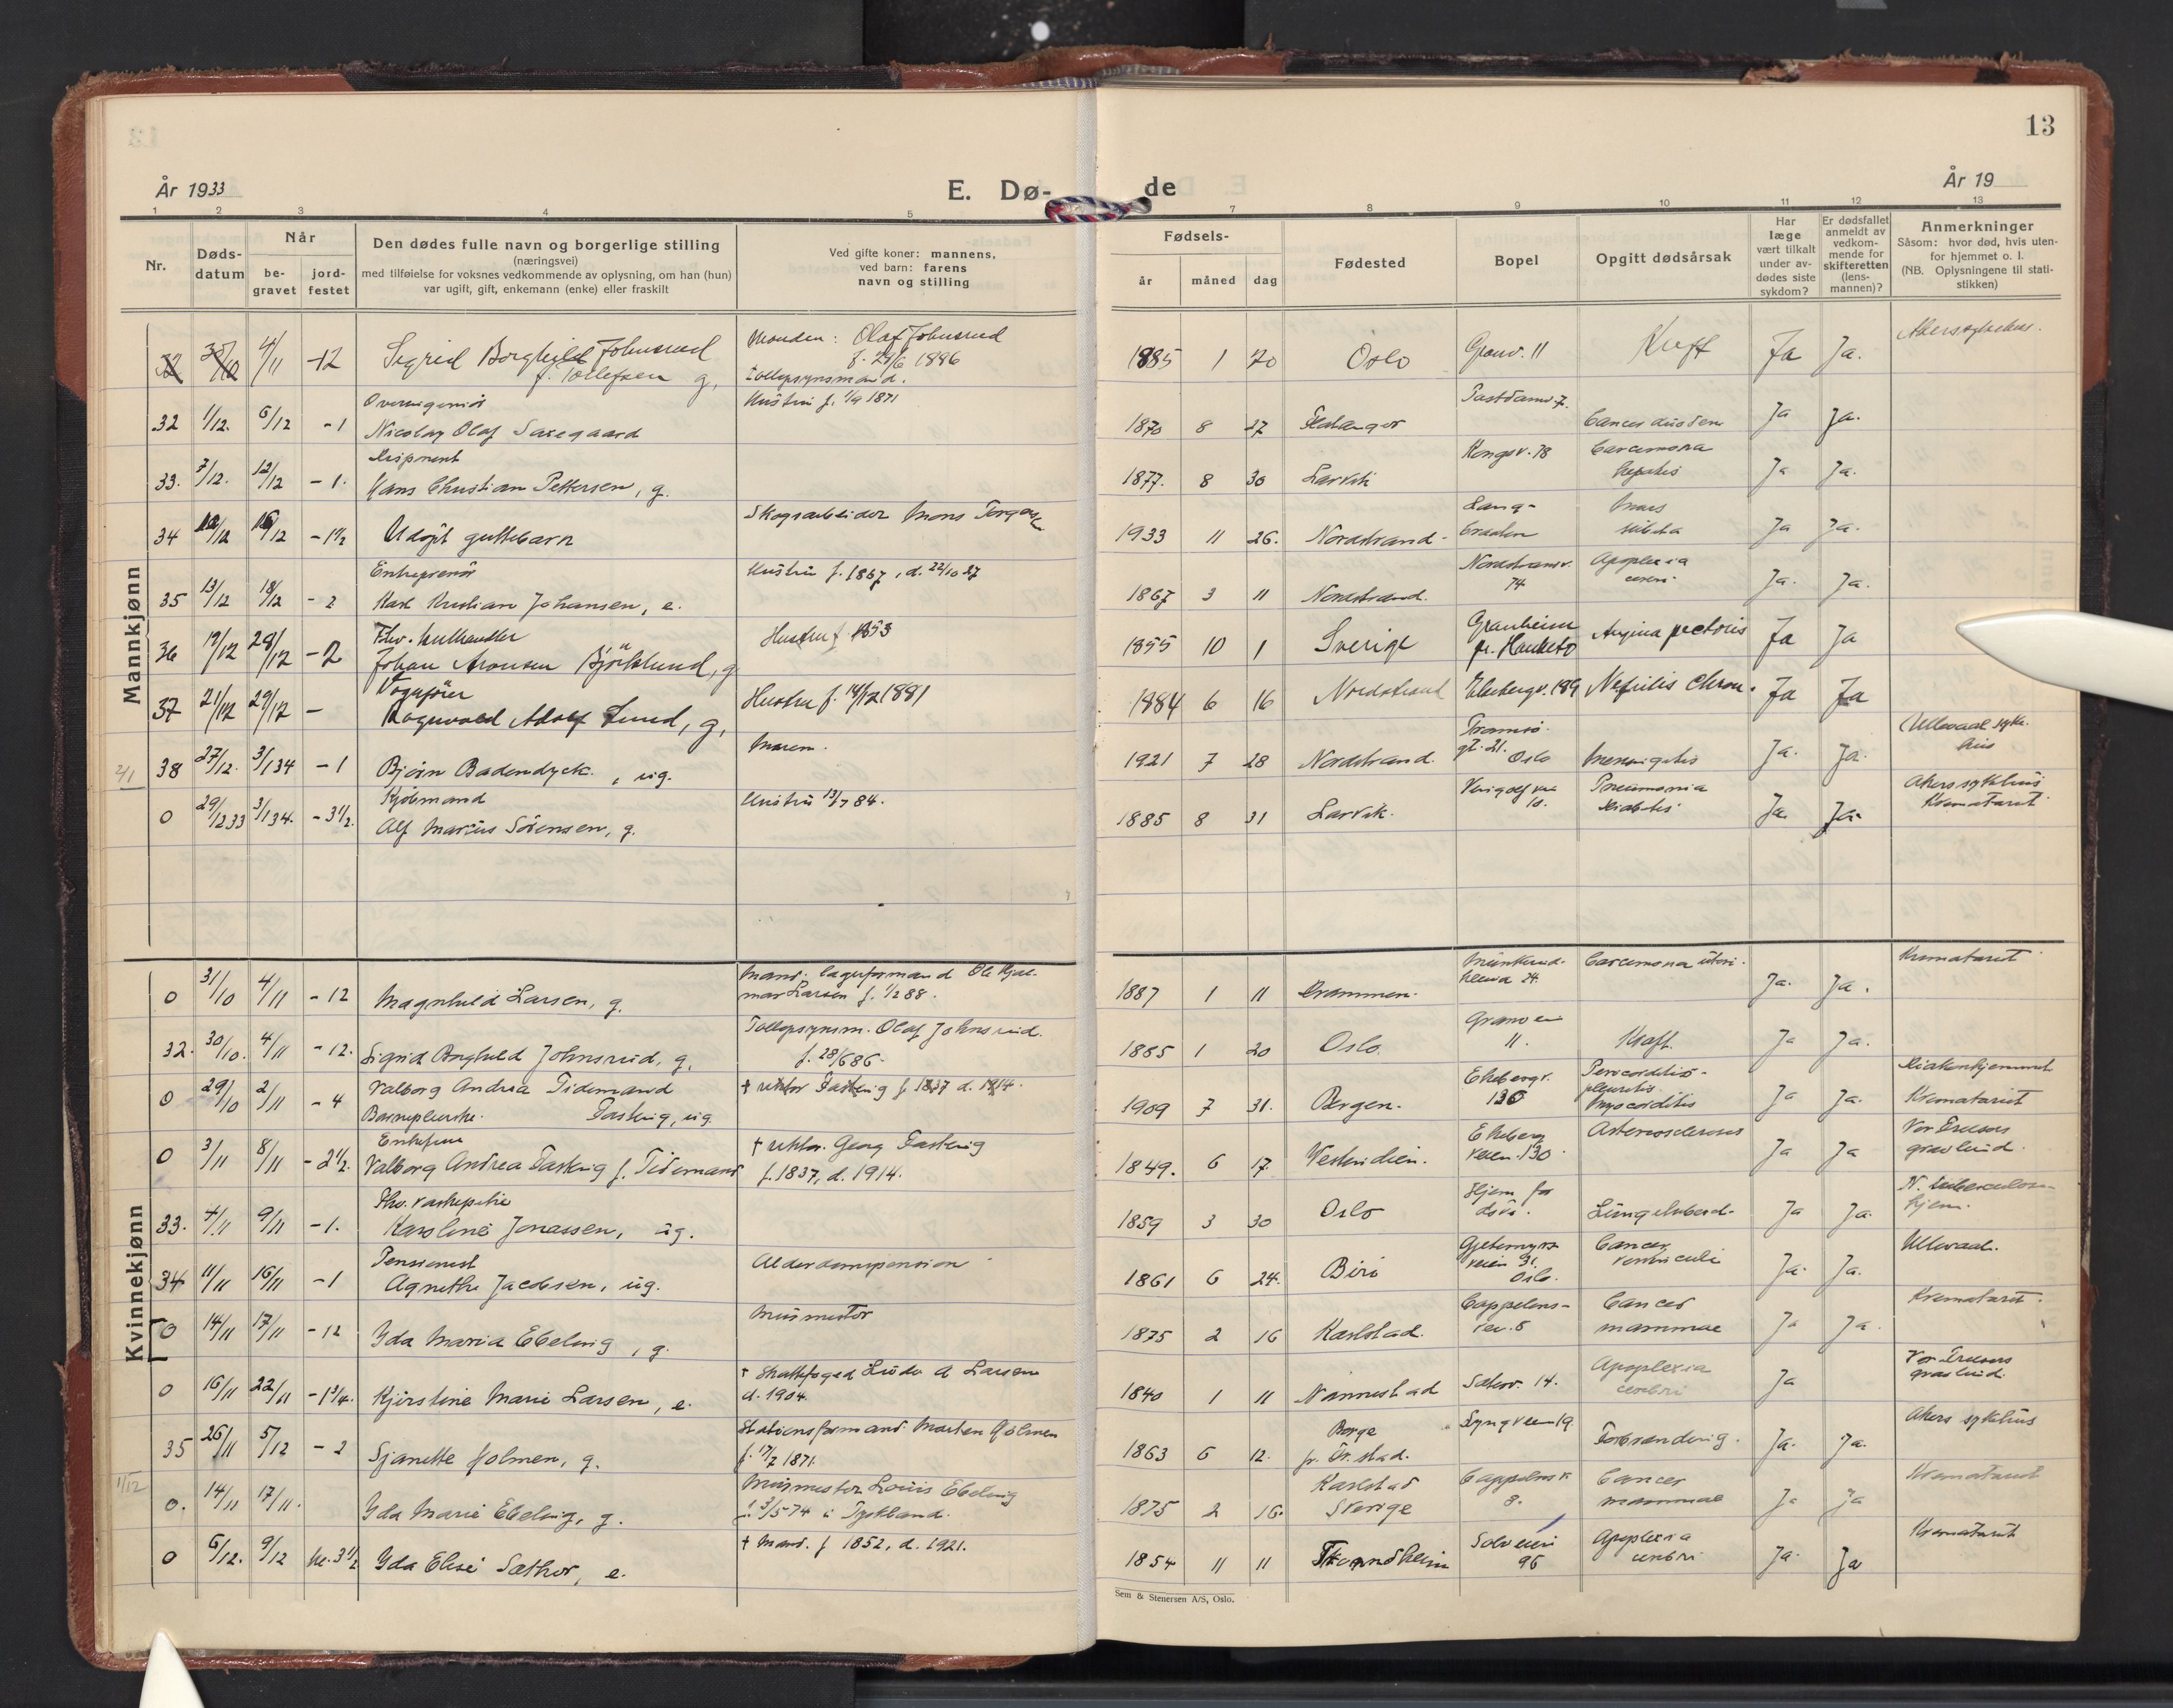 13
År 1933
E. Dø-
de
År 19
1 2 3 4 5 7 8 9 10 11 12 13
Nr.
Døds-
datum
Når
be-
gravet
jord-
festet
Den dødes fulle navn og borgerlige stilling
(næringsvei)
med tilføielse for voksnes vedkommende av oplysning, om han (hun)
var ugift, gift, enkemann (enke) eller fraskilt
Ved gifte koner: mannens,
ved barn: farens
navn og stilling
Fødsels-
år måned dag
Fødested
Bopel
Opgitt dødsårsak
Har
læge
vært tilkalt
under av-
dødes siste
sykdom?
Er dødsfallet
anmeldt av
vedkom-
mende for
skifteretten
(lens-
mannen)?
Anmerkninger
Såsom: hvor død, hvis uten-
for hjemmet o. l.
(NB. Oplysningene til stati-
stikken)
Mannkjønn
32 30/10 4/11 -12 Sigrid Borghild Johnsrud
f. Tollefsen g.
Manden: Olaf Johnsrud
f. 29/6 1886
Tollopsynsmand.
1885 1 20 Oslo Granv. 11 Kreft Ja Ja. Akers sykehus.
32 1/12. 6/12 -1 Overingeniør
Nicolay Olaf Saxegaard
Hustru f. 1/9 1871
1870 8 27 Ja Ja.
33. 7/12. 12/12 -1. Disponent
Hans Christian Pettersen, g.
1877. 8 30 Larvik Kongsv. 78 Carcinoma
hepatis Ja Ja.
34 12/12 16/12 -1 1/2 Udøpt guttebarn
Skogsarbeider Mons
1933 11 26. Nordstrand- Lang-
braaten Ja Ja.
35 13/12 18/12 -2 Entreprenør
Karl Kristian Johansen, e.
Hustru f. 1867, d. 22/10 27
1867 3 11 Nordstrand. Nordstrandv.
74 Apoplexia
cerebri Ja. Ja.
36 19/12 28/12 -2 Fhv. kulhandler
Johan Aronsen Björklund, g
Hustru f 1853
1855 10 1 Sverige Granheim
pr. Hauketo Angina pectoris Ja Ja
37 21/12 29/12 - Vognfører
Ragnvald Adolf Lund, g,
Hustru f. 14/12 1881
1884 6 16 Nordstrand Ekebergv. 189 Nefritis chron. Ja Ja
2/1 38 27/12. 3/1 34 -1 Bjørn Badendyck., ug.
1921 7 28 Nordstrand. Tromsø-
gt. 21. Oslo Meningitis Ja. Ja. Ullevaal syke-
hus
0 29/12 33 3/1 34. -3 1/2. Kjøbmand
Alf Marius Sørensen, g.
Hustru 13/7 84.
1885 8 31 Larvik. Pneumonia
Diabetis Ja. Ja. Akers sykehus
Krematoriet
Kvinnekjønn
0 31/10 4/11 -12 Magnhild Larsen, g.
Mand: lagerformand Ole Hjal-
mar Larsen f. 1/2 88.
1887 1 11 Drammen. Carcinoma uteri. Ja. Ja. Krematoriet
32. 30/10. 4/11 -12. Sigrid Borghild Johnsrud, g.
Tollopsynsm. Olaf Johnsrud.
f. 28/6 86.
1885 1 20 Oslo. Granveien
11. Kræft. Ja Ja.
0 29/10 2/11 -4 Valborg Andrea Tidemand
Barnepleierske. Fasting, ug.
† rektor Fasting f 1837 d. 1914.
1909 7 31. Bergen. Ekebergv.
130 Pericorditis-
pleuritis
Myocorditis Ja Ja. Diakonhjemmet
Krematoriet
0 3/11 8/11 -2 1/2. Enkefrue
Valborg Andrea Fasting f. Tidemand
† rektor Georg Fasting
f. 1837, d. 1914.
1849. 6 17. Vestindien. Ekeberg
veien 130 Arteriosclerosis Ja Ja Vor Frelsers
gravlund.
33. 4/11 9/11 -1. Fhv. vaskepike
Karoline Jonassen, ug.
1859 3 30 Oslo Hjem for
døve. Lungetuberk. Ja Ja. N. tuberculose-
hjem.
34 11/11 16/11 -1 Pensionist
Agnethe Jacobsen, ug.
Alderdomspension
1861 6 24. Biri Gjetemyrs-
veien 31.
Oslo. Cancer
ventriculi Ja. Ja. Ullevaal.
0 14/11 17/11 -12 Yda Maria Ebeling, g.
Murmester
1875 2 16 Karlstad. Cappelens-
vei. 8 Cancer
mammae Ja Ja. Krematoriet.
0 16/11 22/11 -1 3/4. Kjerstine Marie Larsen, e.
† Skattefoged Lude A Larsen
d. 1904.
1840 1 11 Nannestad Sæterv. 14. Apoplexia
cerebri Ja Vor Frelsers
gravlund.
35 26/11 5/12 -2 Sjanette Holmen, g.
Stationsformand Morten Holmen
f. 17/7 1871.
1863 6 12. Borge
pr. Fr.stad. Lyngveien 19 Forbrænding. Ja. Ja. Akers sykehus
1/12 0. 14/11 17/11. Yda Marie Ebeling, g.
Murmester Louis Ebeling
f. 3/5 74 i Tyskland.
1875 2 16. Karlstad
Sverige Cappelensv
8. Cancer
mammae Ja Ja Krematoriet
0 6/12. 9/12 kl. 3 1/2 Yda Elise Sæther, e.
† Mand. f 1852, d. 1921.
1854 11 11 Trondheim Solveien
96 Apoplexia
cerebri Ja. Ja Krematoriet
Sem & Stenersen A/S, Oslo.